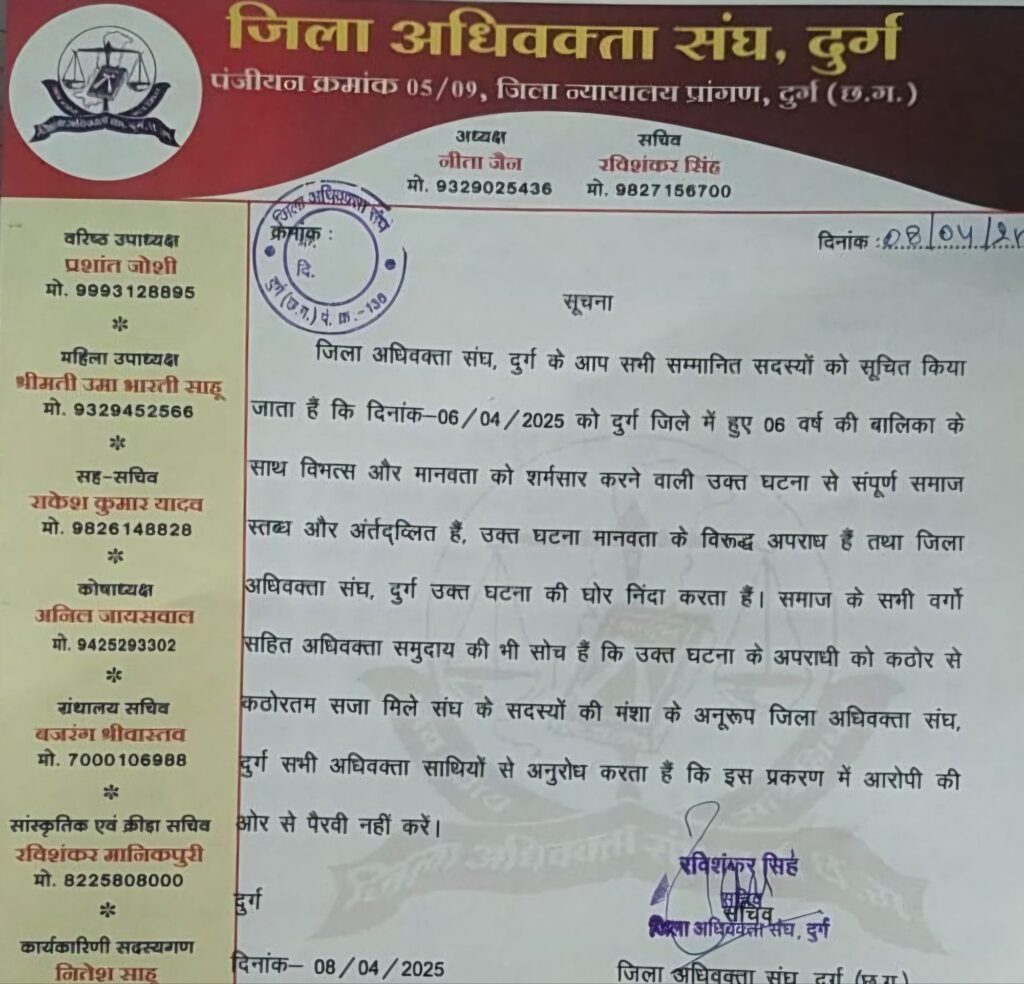 जिला अधिवक्ता संघ, दुर्ग
पंजीयन क्रमांक 05/09, जिला न्यायालय प्रांगण, दुर्ग (छ.ग.)
अध्यक्ष
नीता जैन
मो. 9329025436
सचिव
रविशंकर सिंह
मो. 9827156700
वरिष्ठ उपाध्यक्ष
प्रशांत जोशी
मो. 9993128895
महिला उपाध्यक्ष
श्रीमती उमा भारती साहू
मो. 9329452566
सह-सचिव
राकेश कुमार यादव
मो. 9826148828
कोषाध्यक्ष
अनिल जायसवाल
मो. 9425293302
ग्रंथालय सचिव
बजरंग श्रीवास्तव
मो. 7000106988
सांस्कृतिक एवं क्रीडा सचिव
रविशंकर मानिकपुरी
मो. 8225808000
कार्यकारिणी सदस्यगण
नितेश साहू
जिला अधिवक्ता संघ
क्रमांक :
दि.
दुर्ग (छ.ग.) पं. क्र.-136
दिनांक : 08/04/25
सूचना
जिला अधिवक्ता संघ, दुर्ग के आप सभी सम्मानित सदस्यों को सूचित किया
जाता हैं कि दिनांक–06/04/2025 को दुर्ग जिले में हुए 06 वर्ष की बालिका के
साथ विभत्स और मानवता को शर्मसार करने वाली उक्त घटना से संपूर्ण समाज
स्तब्ध और अंर्तद्व्लित हैं, उक्त घटना मानवता के विरूद्ध अपराध हैं तथा जिला
अधिवक्ता संघ, दुर्ग उक्त घटना की घोर निंदा करता हैं। समाज के सभी वर्गो
सहित अधिवक्ता समुदाय की भी सोच हैं कि उक्त घटना के अपराधी को कठोर से
कठोरतम सजा मिले संघ के सदस्यों की मंशा के अनुरूप जिला अधिवक्ता संघ,
दुर्ग सभी अधिवक्ता साथियों से अनुरोध करता हैं कि इस प्रकरण में आरोपी की
ओर से पैरवी नहीं करें।
रविशंकर सिंह
सचिव
सचिव
जिला अधिवक्ता संघ, दुर्ग
दुर्ग
दिनांक– 08/04/2025
जिला अधिवक्ता संघ, दुर्ग (छ.ग.)